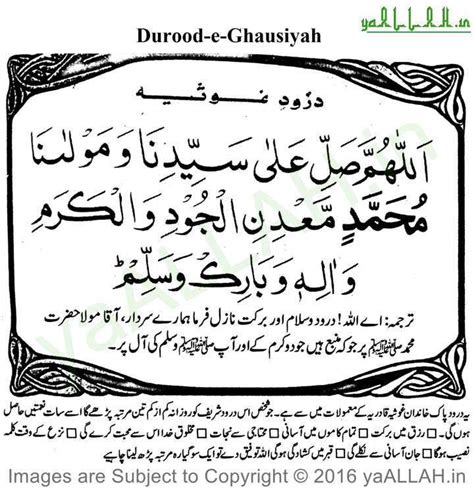 yaALLAH.in
Durood-e-Ghausiyah
درودِ غوثیہ
اَللّٰهُمَّ صَلِّ عَلٰى سَيِّدِنَا وَمَوْلٰىنَا
مُحَمَّدٍ مَّعْدِنِ الْجُوْدِ وَالْكَرَمِ
وَاٰلِهٖ وَبَارِكْ وَسَلِّمْ ؕ
ترجمہ: اے اللہ! درود و سلام اور برکت نازل فرما ہمارے سردار، آقا مولا حضرت
محمد ﷺ پر جو کہ منبع ہیں جود و کرم کے اور آپ ﷺ کی آل پر۔
یہ درود پاک خاندان غوثیہ قادریہ کے معمولات میں سے ہے۔ جو شخص اس درود شریف کو روزانہ کم از کم تین مرتبہ پڑھے گا اسے سات نعمتیں حاصل
ہوں گی۔ □ رزق میں برکت □ تمام کاموں میں آسانی □ محتاجی سے نجات □ مخلوق خدا اس سے محبت کرے گی □ نزع کے وقت کلمہ
نصیب ہوگا □ جان آسانی سے نکلے گی □ قبر میں کشادگی ہوگی اللہ توفیق دے تو ایک سو گیارہ مرتبہ پڑھ لینا چاہیے
Images are Subject to Copyright © 2016 yaALLAH.in